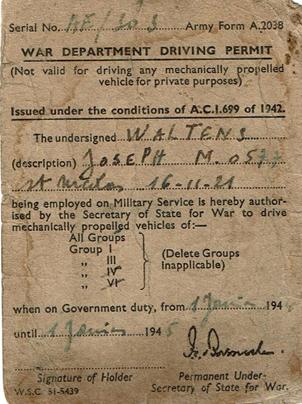 Serial No. AF/303 Army Form A.2038
WAR DEPARTMENT DRIVING PERMIT
(Not valid for driving any mechanically propelled
vehicle for private purposes)
Issued under the conditions of A.C.I.699 of 1942.
The undersigned WALTENS
(description) JOSEPH M.
16-11-21
being employed on Military Service is hereby author-
ised by the Secretary of State for War to drive
mechanically propelled vehicles of:—
All Groups
Group I
„ III
„ IV
„ VI
(Delete Groups
inapplicable)
when on Government duty, from 1 194
until 1 1945
Signature of Holder
Permanent Under-
Secretary of State for War.
W.S.C. 51-5439